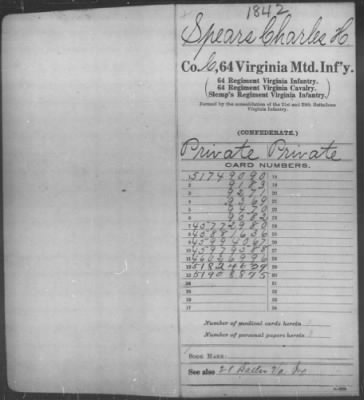 1842
Spears Charles H
Co. C, 64 Virginia Mtd. Inf'y.
64 Regiment Virginia Infantry.
64 Regiment Virginia Cavalry.
(Slemp's Regiment Virginia Infantry.)
Formed by the consolidation of the 21st and 29th Battalions
Virginia Infantry.
(CONFEDERATE.)
Private Private
CARD NUMBERS.
1 51749090 18
2 9183 19
3 9271 20
4 9369 21
5 9470 22
6 9082 23
7 45772980 24
8 45881636 25
9 45994067 26
10 45979588 27
11 46026996 28
12 51824679 29
13 51908875 30
14 31
15 32
16 33
17 34
Number of medical cards herein
Number of personal papers herein
BOOK MARK:
See also 21 Va. Inf